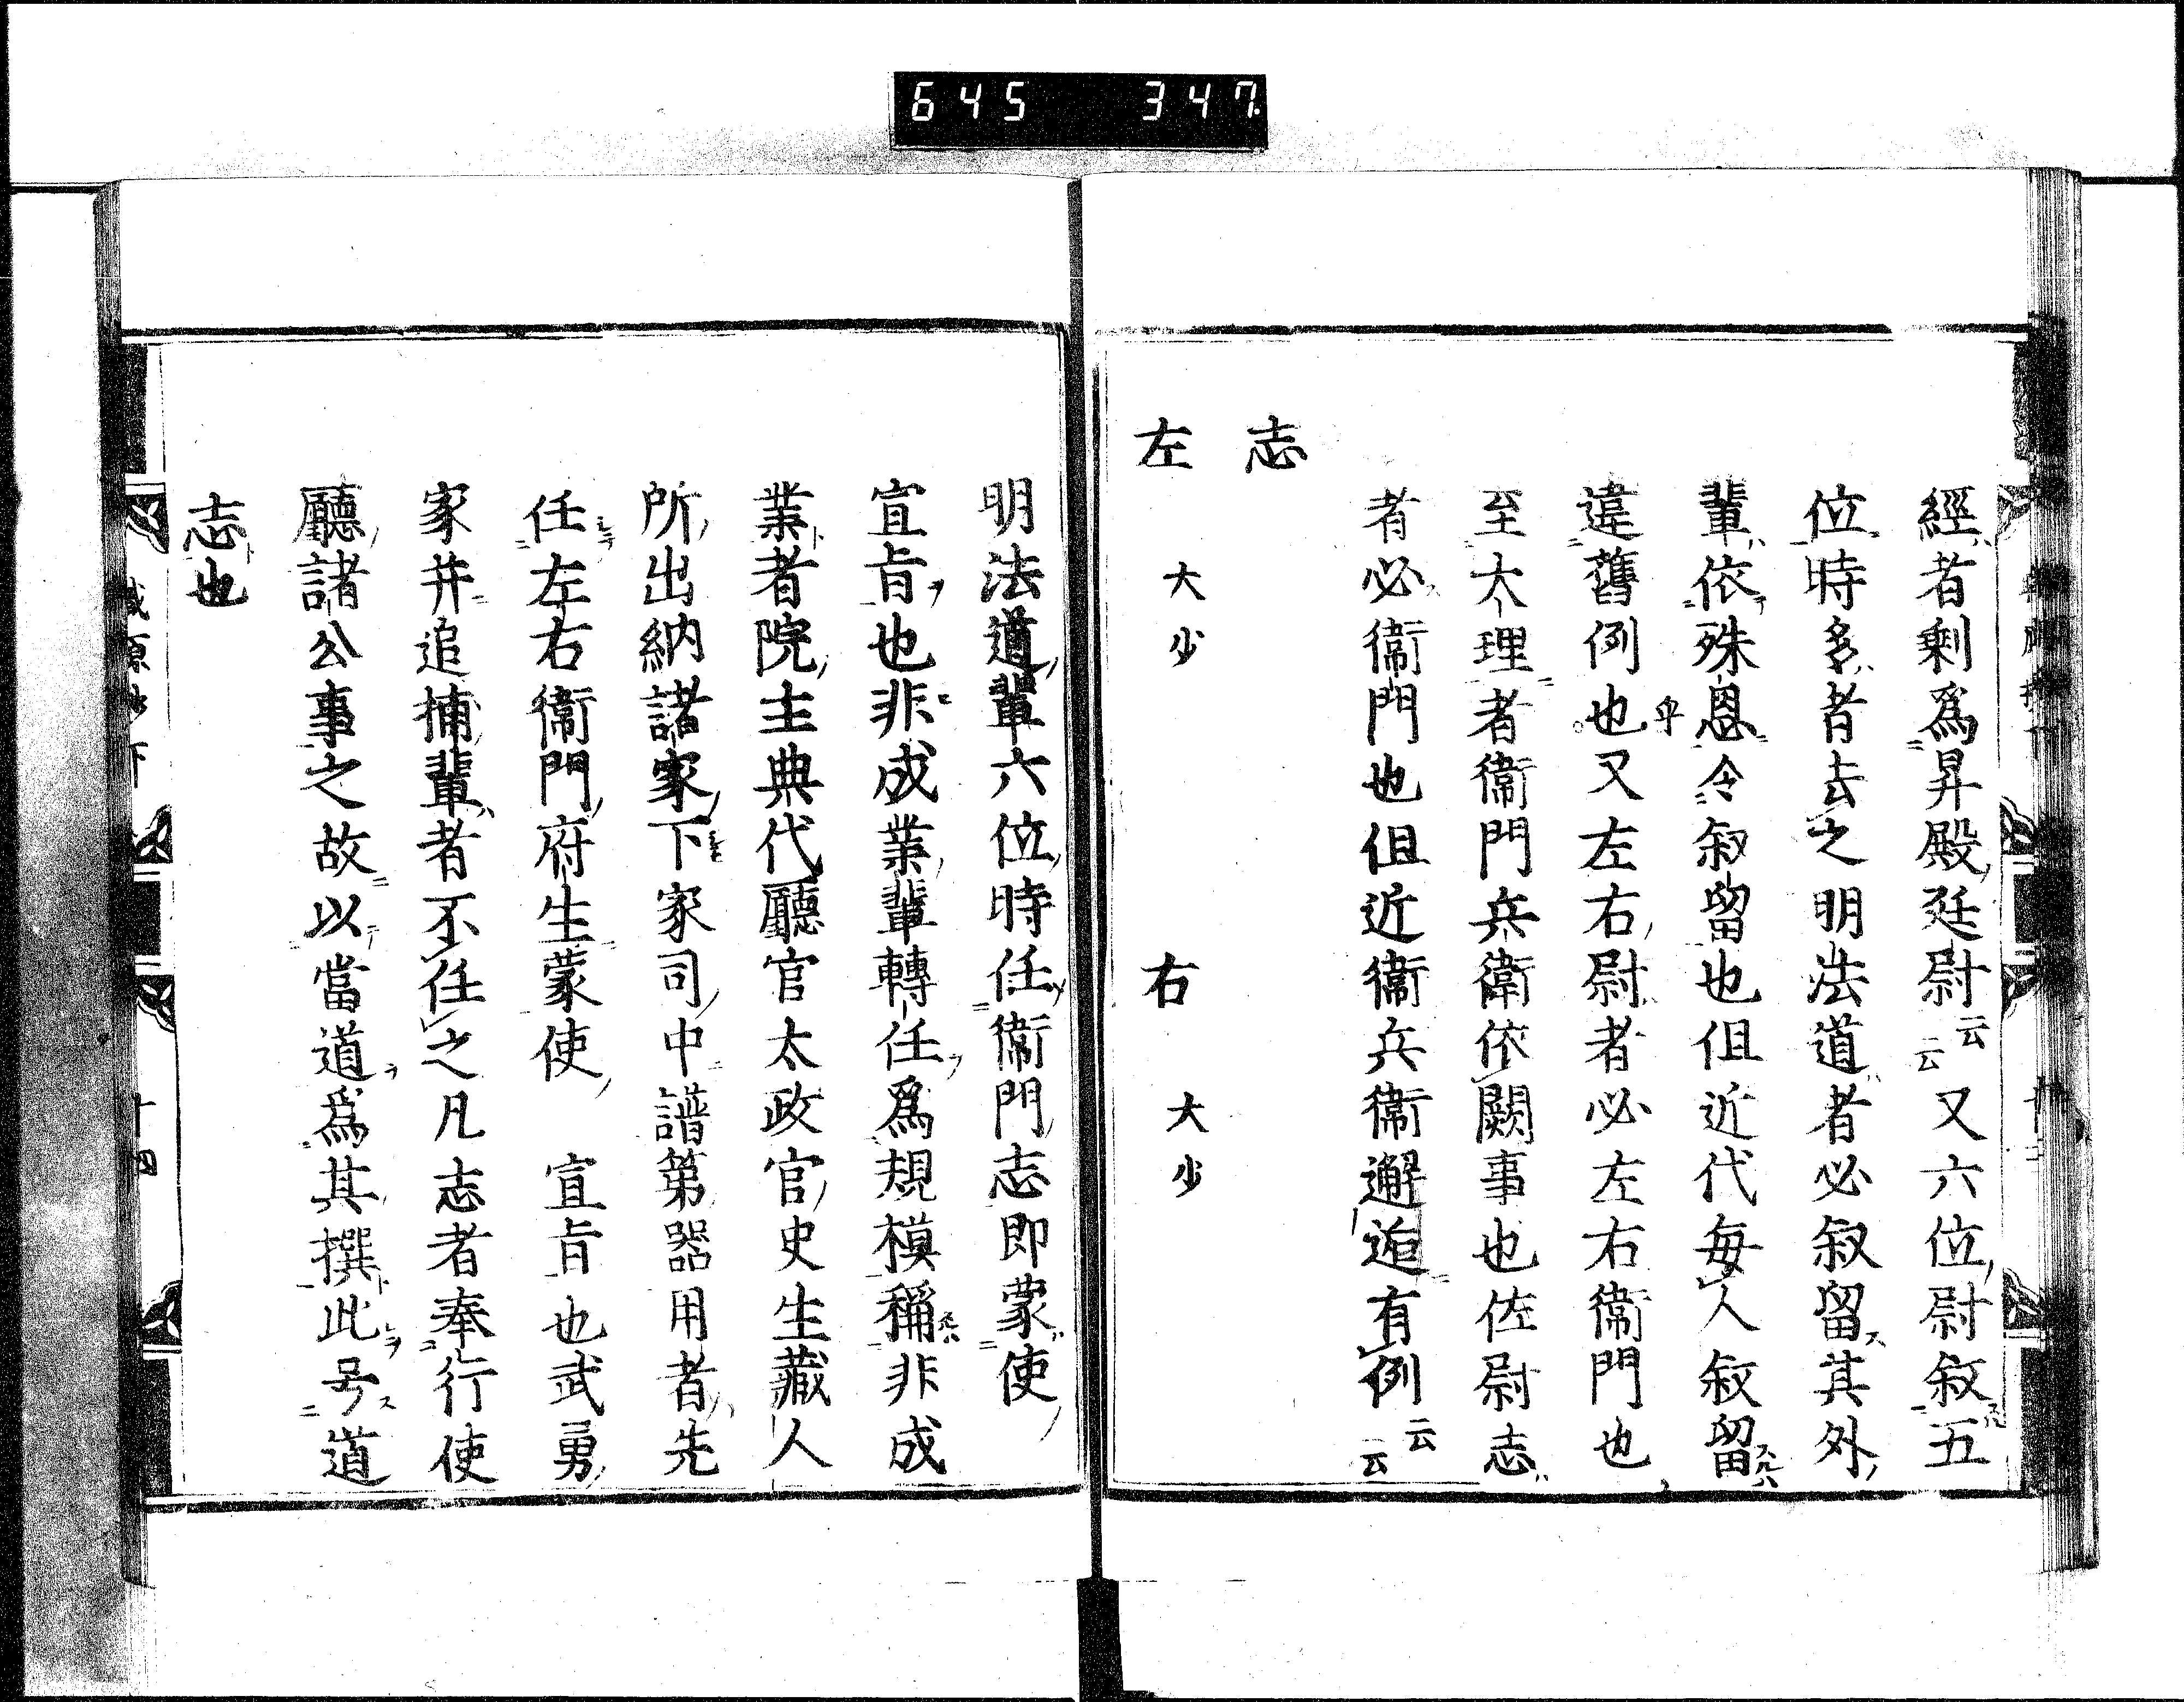 645 347
經者剰爲昇殿廷尉云云又六位尉叙五
位時多者去之明法道者必叙留其外
輩依殊恩令叙留也但近代毎人叙留
違舊例也又左右尉者必左右衞門也
至大理者衞門兵衛依闕事也佐尉志
者必衞門也但近衞兵衞邂逅有例云云
志
左 大少 右 大少
明法道輩六位時任衞門志即蒙使
宣旨也非成業輩轉任爲規模稱非成
業者院主典代廳官太政官史生藏人
所出納諸家下家司中譜第器用者先
任左右衞門府生蒙使 宣旨也武勇
家并追捕輩者不任之凡志者奉行使
廳諸公事之故以當道爲其撰此号道
志也
十四